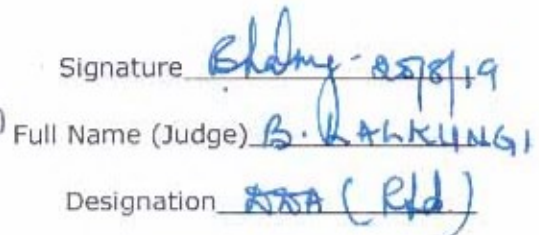 Signature 25/8/19
) Full Name (Judge) B. RALKUNGI
Designation DDA (Rtd.)